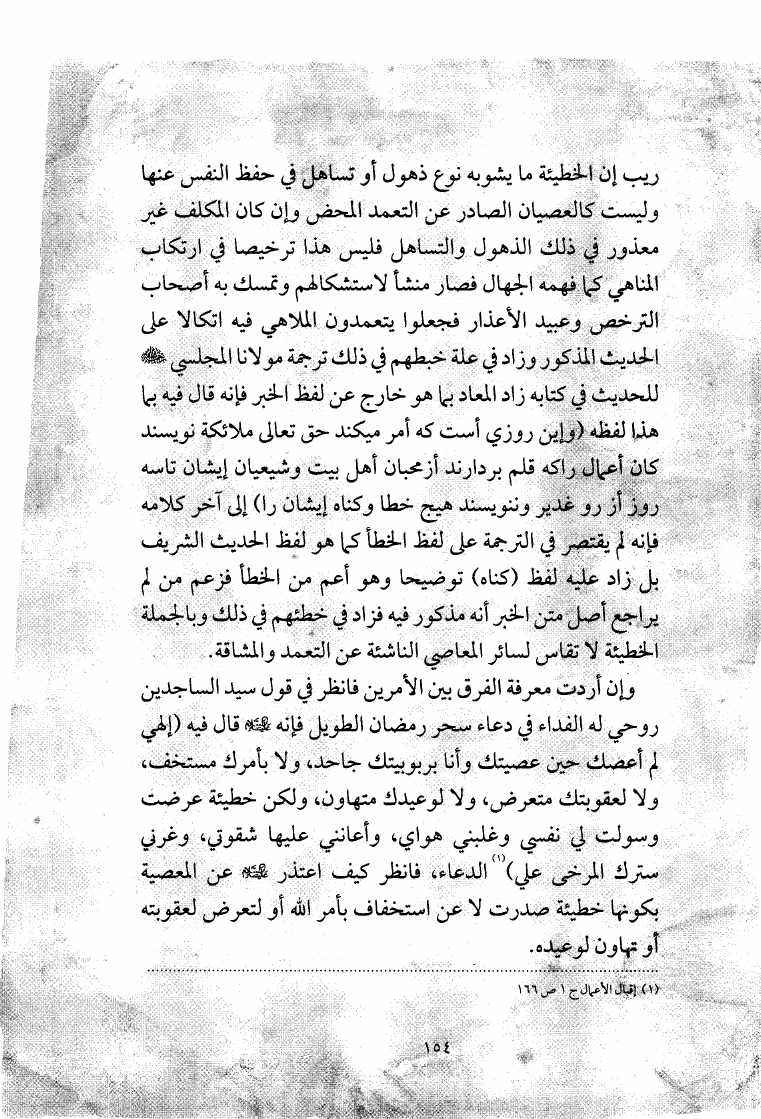 ريب إن الخطيئة ما يشوبه نوع ذهول أو تساهل في حفظ النفس عنها
وليست كالعصيان الصادر عن التعمد المحض وإن كان المكلف غير
معذور في ذلك الذهول والتساهل فليس هذا ترخيصا في ارتكاب
المناهي كما فهمه الجهال فصار منشأ لاستشكالهم وتمسك به أصحاب
الترخص وعبيد الأعذار فجعلوا يتعمدون الملاهي فيه اتكالا على
الحديث المذكور وزاد في علة خبطهم في ذلك ترجمة مولانا المجلسي
للحديث في كتابه زاد المعاد بما هو خارج عن لفظ الخبر فإنه قال فيه بما
هذا لفظه (وإين روزي أست كه أمر ميكند حق تعالى ملائكة نويسند
كان أعمال راكه قلم بردارند أز محبان أهل بيت وشيعيان إيشان تاسه
روز أز رو غدير وننويسند هيج خطا وكناه إيشان را) إلى آخر كلامه
فإنه لم يقتصر في الترجمة على لفظ الخطأ كما هو لفظ الحديث الشريف
بل زاد عليه لفظ (كناه) توضيحا وهو أعم من الخطأ فزعم من لم
يراجع أصل متن الخبر أنه مذكور فيه فزاد في خطئهم في ذلك وبالجملة
الخطيئة لا تقاس لسائر المعاصي الناشئة عن التعمد والمشاقة.
وإن أردت معرفة الفرق بين الأمرين فانظر في قول سيد الساجدين
روحي له الفداء في دعاء سحر رمضان الطويل فإنه عليه السلام قال فيه (إلهي
لم أعصك حين عصيتك وأنا بربوبيتك جاحد، ولا بأمرك مستخف،
ولا لعقوبتك متعرض، ولا لوعيدك متهاون، ولكن خطيئة عرضت
وسولت لي نفسي وغلبني هواي، وأعانني عليها شقوتي، وغرني
سترك المرخى علي)(١) الدعاء، فانظر كيف اعتذر عليه السلام عن المعصية
بكونها خطيئة صدرت لا عن استخفاف بأمر الله أو لتعرض لعقوبته
أو تهاون لوعيده.
(١) إقبال الأعمال ج ١ ص ١٦٦
١٥٤